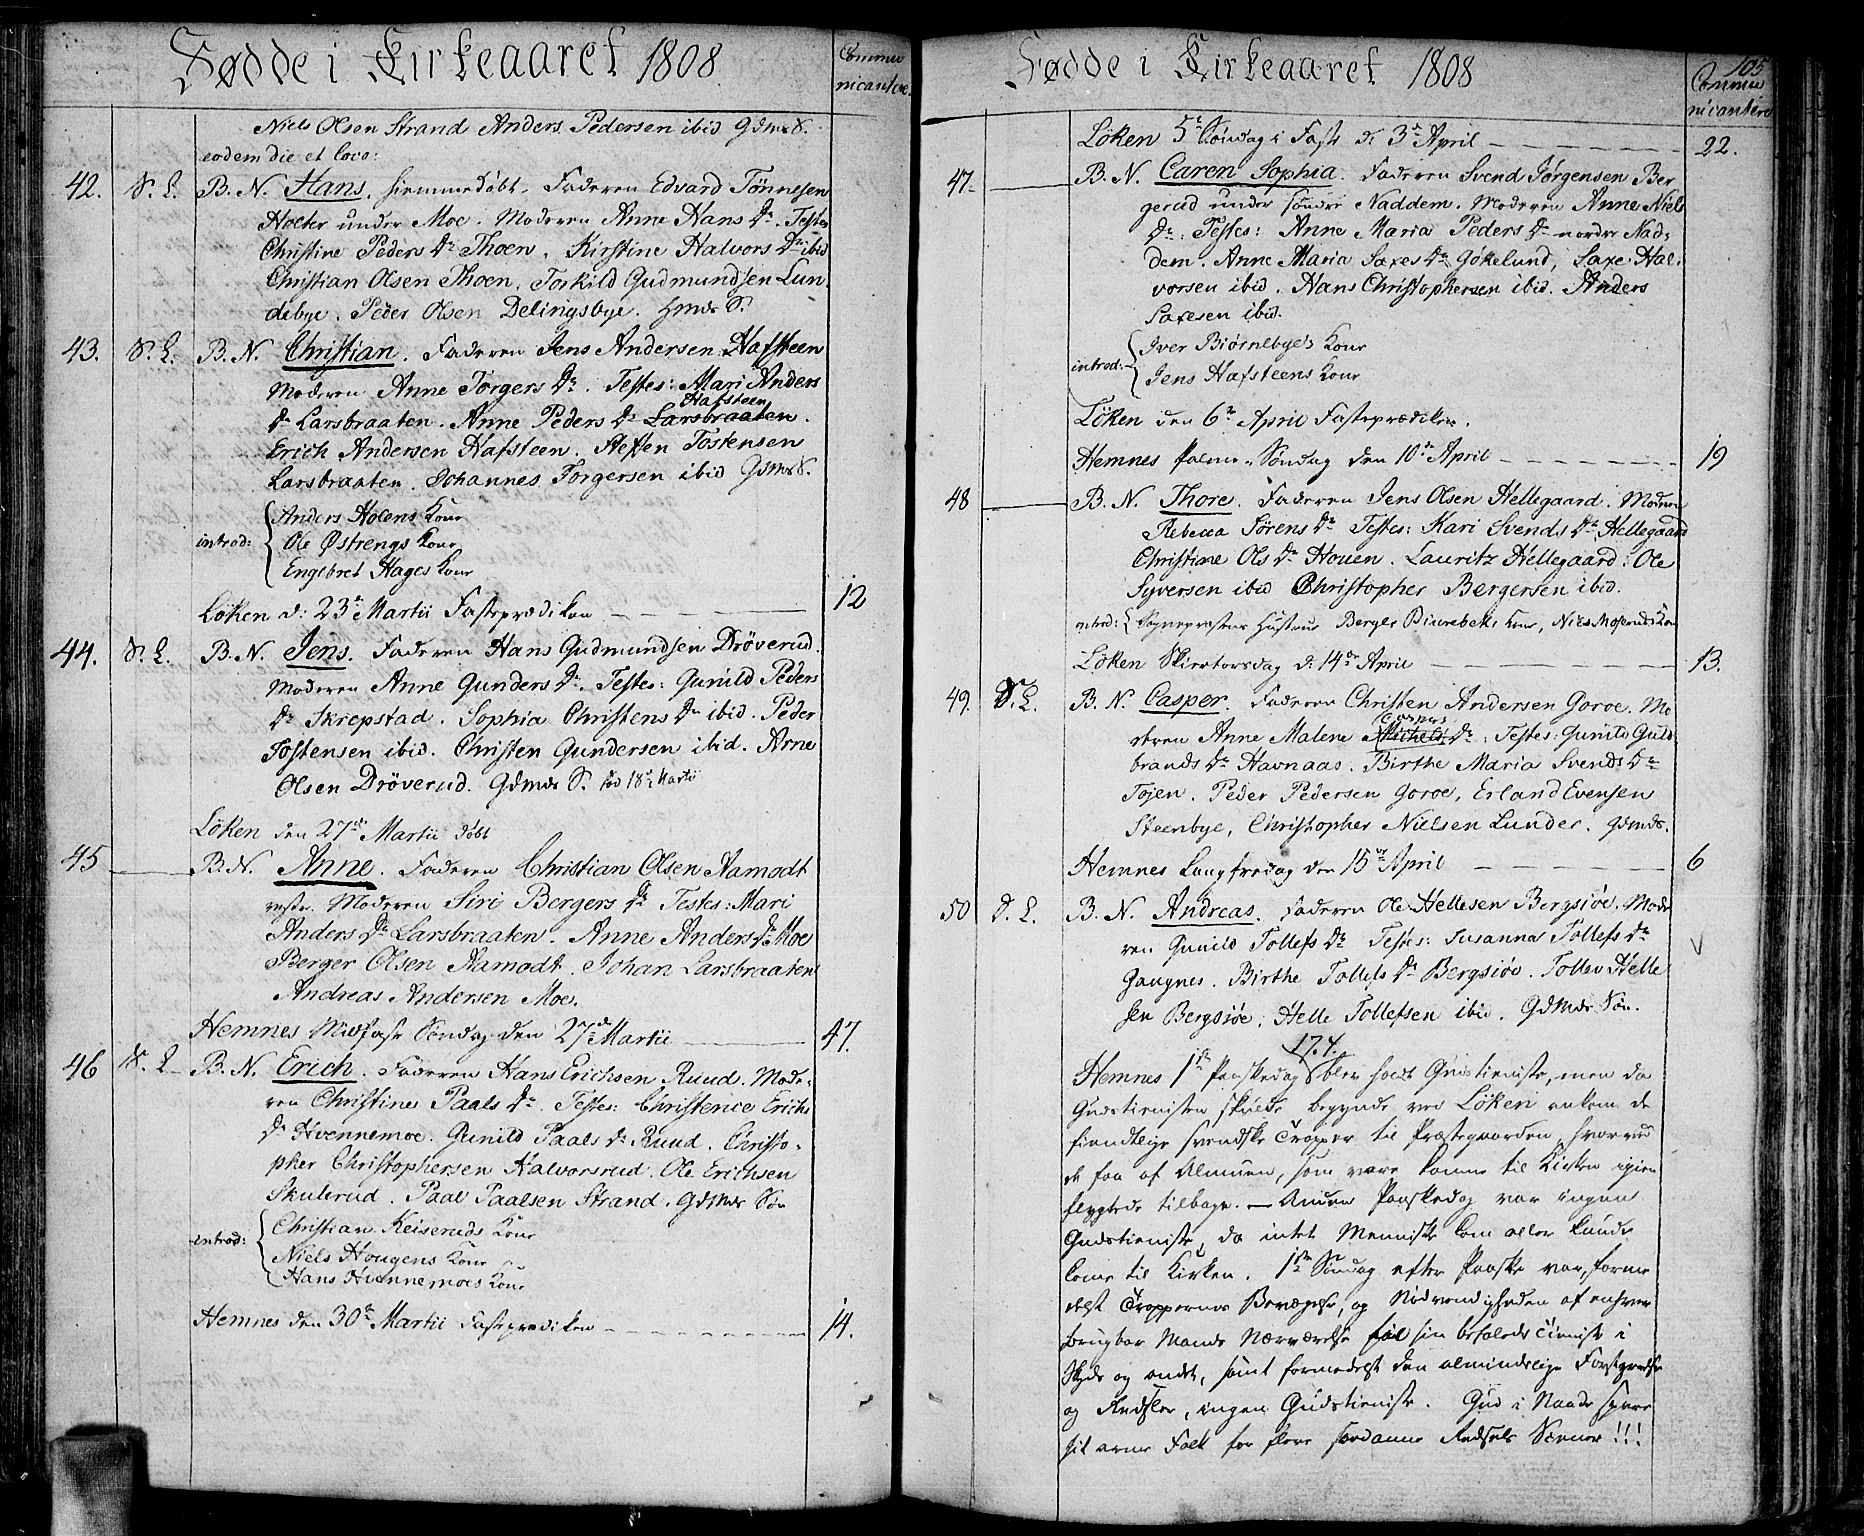 Fødde i Kirkeaaret 1808
Commu
nicantere.
Niels Olsen Strand Anders Pedersen ibid Gdmds S.
eodem die et loco:
42. S. L. B. N. Hans. hiemmedøbt. Faderen Edvard Tønnesen
Holter under Moe. Moderen Anne Hans Dr. Testes
Christine Peders Dr Thoen, Kirstine Halvors Dr ibid
Christian Olsen Thoen, Torkild Gudmundsen Lun
debye. Peder Olsen Delingsbye. Hmds S.
43. S. L. B. N. Christian. Faderen Jens Andersen Hafsteen
Moderen Anne Torgers Dr. Testes: Mari Anders
Dr Larsbraaten. Anne Peders Dr Larsbraaten Hafsteen.
Erich Andersen Hafsteen. Steffen Tostensen
Larsbraaten. Johannes Torgersen ibid Gdmds S.
introd: Anders Holens Kone
Ole Østrengs Kone
Engebret Hages Kone
Løken d: 23de Martii Fasteprædiken 12
44. S. L. B. N. Jens. Faderen Hans Gudmundsen Drøverud.
Moderen Anne Gunders Dr. Testes: Gunild Peders
Dr Skrepstad. Sophia Christens Dr ibid. Peder
Tostensen ibid. Christen Gundersen ibid. Arne
Olsen Drøverud. Gdmds S. fød 18de Martii
Løken den 27de Martii døbt
45 B. N. Anne. Faderen Christian Olsen Aamodt
vestre. Moderen Siri Bergers Dr Testes: Mari
Anders Dr Larsbraaten. Anne Anders Dr Moe
Berger Olsen Aamodt. Johan Larsbraaten
Andreas Andersen Moe.
Hemnes Midfaste Søndag den 27de Martii 47.
46 S. L. B. N. Erich. Faderen Hans Erichsen Ruud. Mode-
ren Christine Paals Dr. Testes: Christence Erichs
Dr Hvennemoe. Gunild Paals Dr Ruud. Christo-
pher Christophersen Halvorsrud. Ole Erichsen
Skulerud. Paal Paalsen Strand. Gdmds Søn
introd: Christian Keiseruds Kone
Niels Hougens Kone
Hans Hvennemoes Kone
Hemnes den 30te Martii Fasteprædiken 14.
Fødde i Kirkeaaret 1808
105
Commu
nicantere
Løken 5te Søndag i Faste d: 3de April 22.
47. B. N. Caren Sophia. Faderen Svend Jørgensen Ber
gerud under søndre Naddem. Moderen Anne Niels
Dr. Testes: Anne Maria Peders Dr nordre Nad-
dem. Anne Maria Saxes Dr Gökelund, Saxe Hal-
vorsen ibid. Hans Christophersen ibid. Anders
Saxesen ibid.
introd: Iver Biørnebye's Kone
Jens Hafsteens Kone
Løken den 6te April Fasteprædiken.
Hemnes Palme-Søndag den 10de April 19
48 B. N. Thore. Faderen Jens Olsen Hellegaard. Moderen
Rebecca Sørens Dr Testes: Kari Svends Dr Hellegaard
Christine Ols Dr Houen. Lauritz Hellegaard. Ole
Syversen ibid Christopher Bergersen ibid.
introd: Sognepræstens Hustrue Berger Biørnebeks Kone, Niels Moseruds Kone
Løken Skiertorsdag d: 14de April 13.
49. S. L. B. N. Casper. Faderen Christen Andersen Goroe. Mo
deren Anne Malene Michels Caspers Dr. Testes: Gunild Guld-
brands Dr Havnaas. Birthe Maria Svends Dr
Tojen. Peder Pedersen Goroe, Erland Evensen
Steenbye, Christopher Nielsen Lunder. Gdmds.
Hemnes Langfredag den 15de April 6
50 S. L. B. N. Andreas. Faderen Ole Hellesen Bergsiøe. Mode
ren Gunild Tollefs Dr Testes: Susanna Tollefs Dr
Gaugnes. Birthe Tollefs Dr Bergsiøe. Tollev Helle
sen Bergsiøe, Helle Tollefsen ibid. Gdmds Søn.
Hemnes 1ste Paaskedag 17.4. blev holdt Gudstieniste, men da
Gudstienisten skulde begynde ved Løken ankom de
fiendtlige svendske Tropper til Præstegaarden, hvorved
de faa af Almuen, som vare komne til Kirken igien
flygtede tilbage. — Anden Paaskedag var ingen
Gudstieniste, da intet Menniske kom eller kunde
komme til Kirken. 1ste Søndag efter Paaske var, forme
delst Troppernes Bevægelse, og Nødvendigheden af enhver
brugbar Mands Nærværelse til sin befalede Tieniste i
Skyds og andet, samt formedelst den almindelige Forstyrrelse
og Rædsler, ingen Gudstieniste. Gud i Naade spare
sit arme Folk for flere saadanne Rædsels Scener!!!